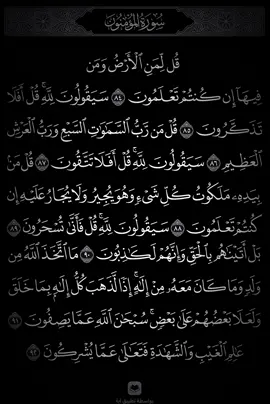 سُورَةُ المُؤْمِنُونَ
قُل لِّمَنِ ٱلْأَرْضُ وَمَن
فِيهَآ إِن كُنتُمْ تَعْلَمُونَ ٨٤ سَيَقُولُونَ لِلَّهِ ۚ قُلْ أَفَلَا
تَذَكَّرُونَ ٨٥ قُلْ مَن رَّبُّ ٱلسَّمَٰوَٰتِ ٱلسَّبْعِ وَرَبُّ ٱلْعَرْشِ
ٱلْعَظِيمِ ٨٦ سَيَقُولُونَ لِلَّهِ ۚ قُلْ أَفَلَا تَتَّقُونَ ٨٧ قُلْ مَنۢ
بِيَدِهِۦ مَلَكُوتُ كُلِّ شَىْءٍ وَهُوَ يُجِيرُ وَلَا يُجَارُ عَلَيْهِ إِن
كُنتُمْ تَعْلَمُونَ ٨٨ سَيَقُولُونَ لِلَّهِ ۚ قُلْ فَأَنَّىٰ تُسْحَرُونَ ٨٩
بَلْ أَتَيْنَٰهُم بِٱلْحَقِّ وَإِنَّهُمْ لَكَٰذِبُونَ ٩٠ مَا ٱتَّخَذَ ٱللَّهُ مِن
وَلَدٍ وَمَا كَانَ مَعَهُۥ مِنْ إِلَٰهٍ ۚ إِذًا لَّذَهَبَ كُلُّ إِلَٰهٍۭ بِمَا خَلَقَ
وَلَعَلَا بَعْضُهُمْ عَلَىٰ بَعْضٍ ۚ سُبْحَٰنَ ٱللَّهِ عَمَّا يَصِفُونَ ٩١
عَٰلِمِ ٱلْغَيْبِ وَٱلشَّهَٰدَةِ فَتَعَٰلَىٰ عَمَّا يُشْرِكُونَ ٩٢
بواسطة تطبيق آية